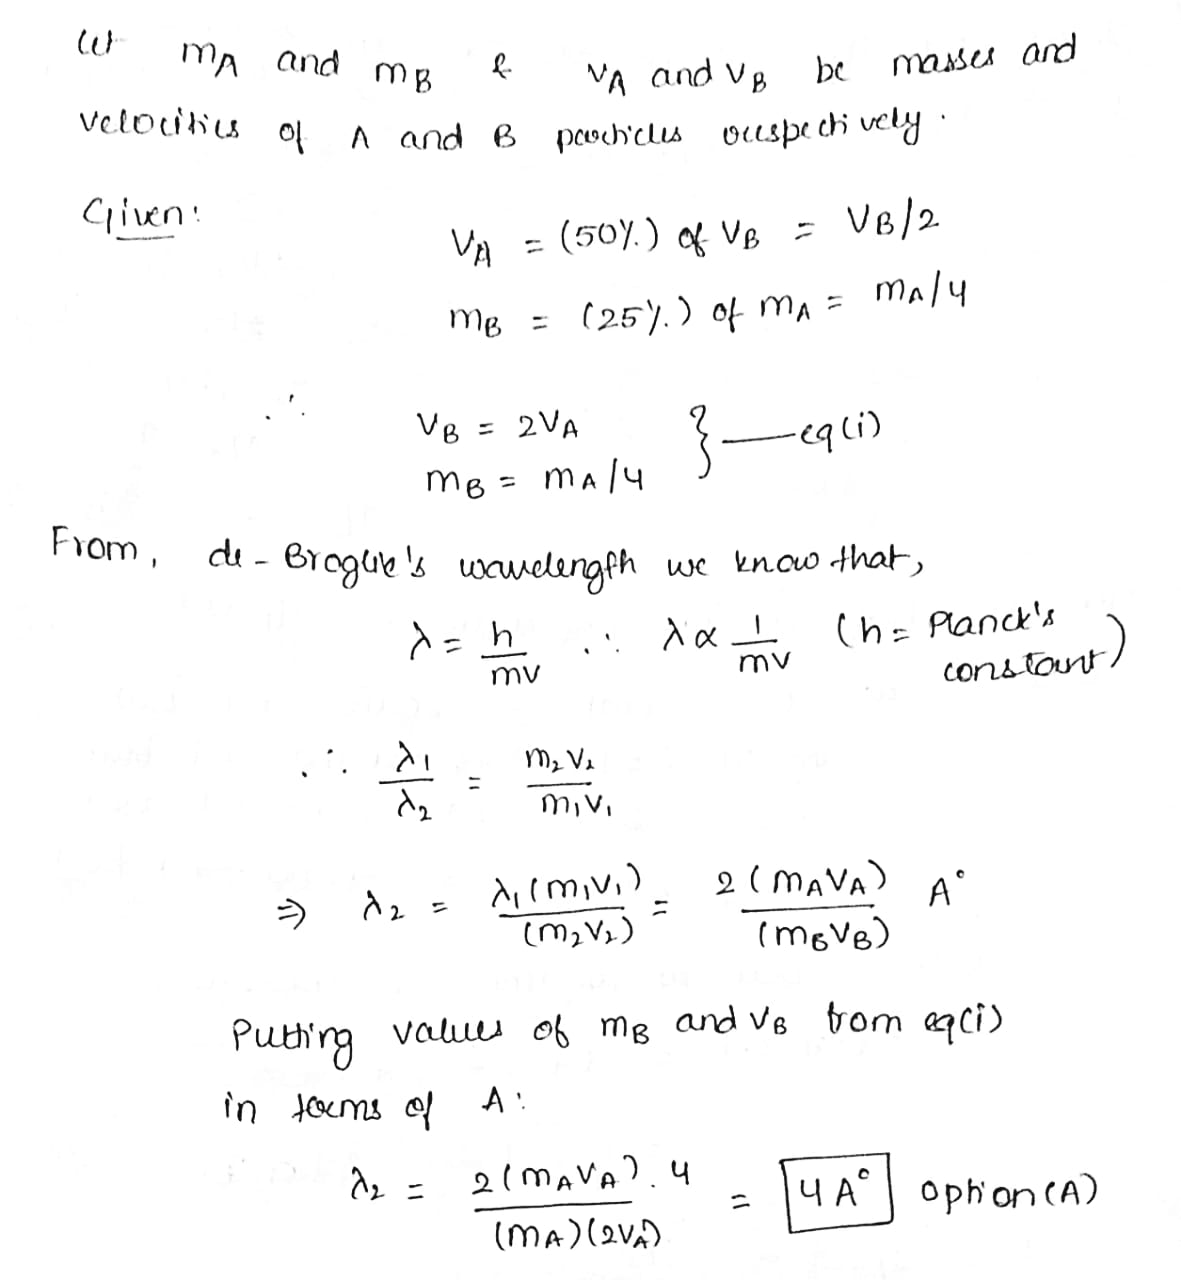 let mA and mB & vA and vB be masses and
velocities of A and B particles respectively.
Given:
VA = (50%) of VB = VB/2
mB = (25%) of mA = mA/4
∴ VB = 2VA
mB = mA/4 } — eq(i)
From, de-Broglie's wavelength we know that,
λ = h/mv ∴ λ ∝ 1/mv (h = Planck's constant)
∴ λ1/λ2 = m2V2/m1V1
⇒ λ2 = λ1(m1V1)/(m2V2) = 2(mAVA)/(mBVB) A°
Putting values of mB and VB from eq(i)
in terms of A:
λ2 = 2(mAVA).4/(mA)(2VA) = 4A° option(A)